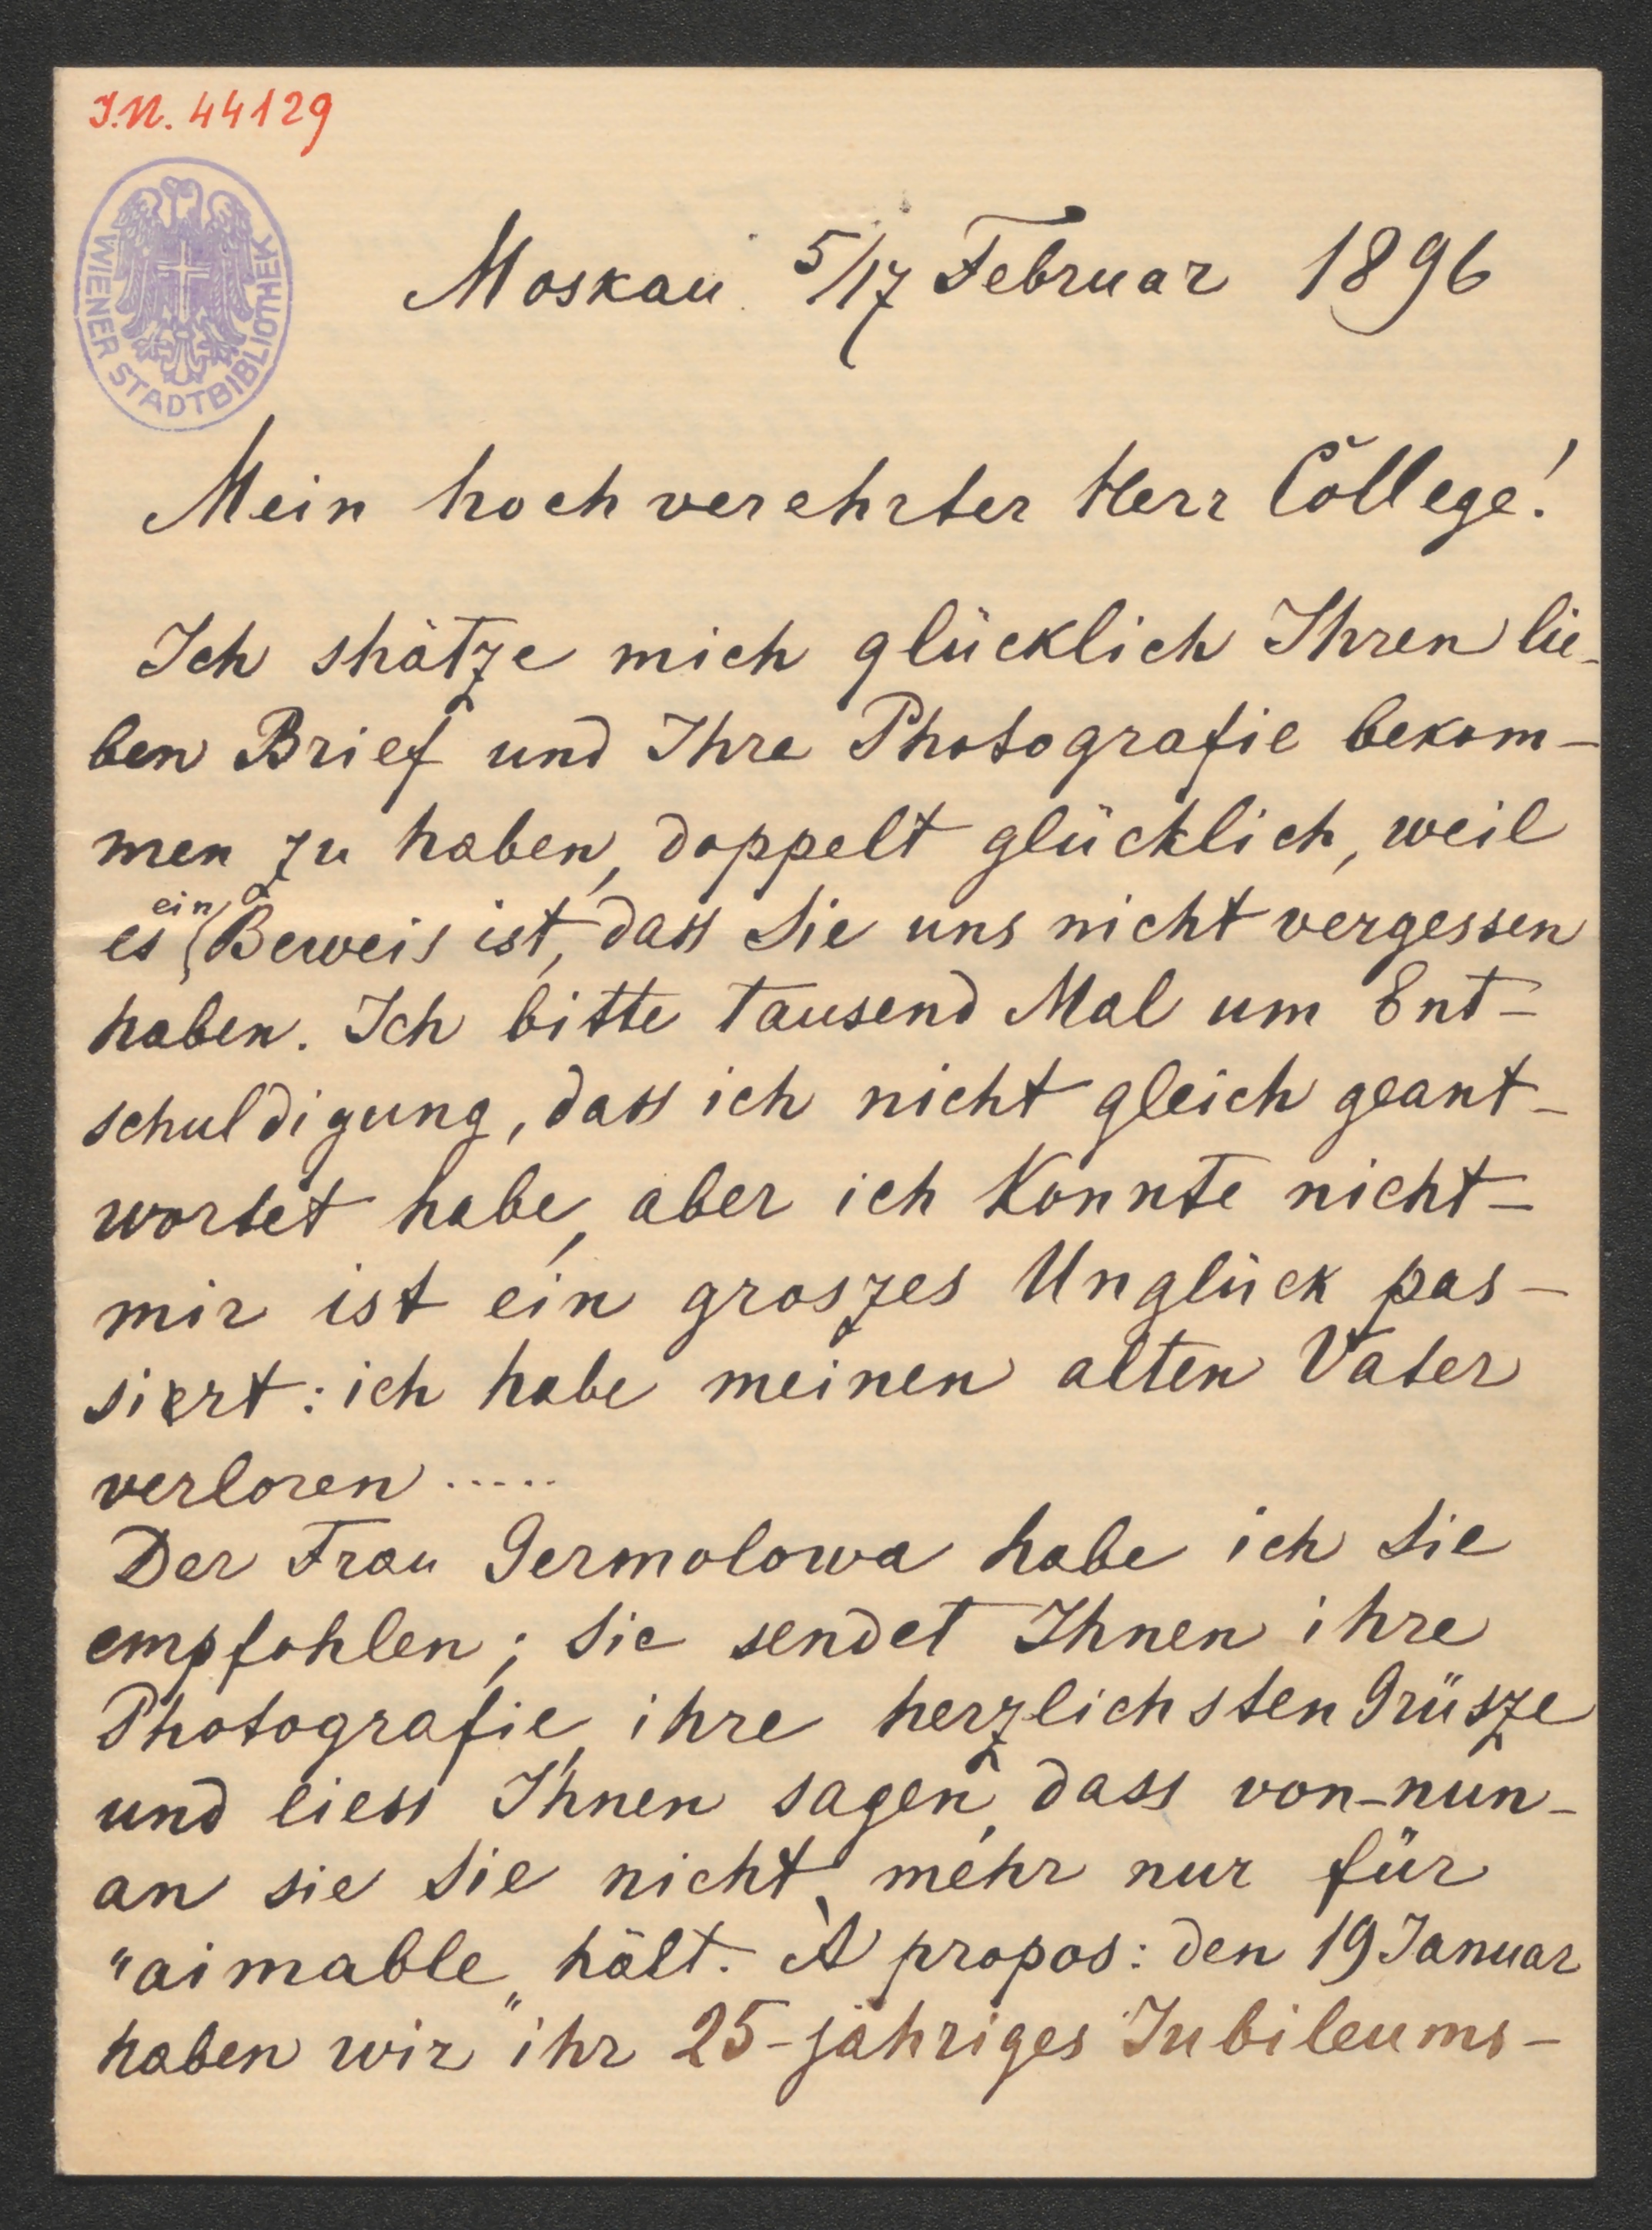 I.N. 44129
WIENER STADTBIBLIOTHEK
Moskau 5/17 Februar 1896
Mein hochverehrter Herr College!
Ich shätze mich glücklich Ihren lie-
ben Brief und Ihre Photografie bekom-
men zu haben, doppelt glücklich, weil
es ein Beweis ist, dass Sie uns nicht vergessen
haben. Ich bitte tausend Mal um Ent-
schuldigung, dass ich nicht gleich geant-
wortet habe, aber ich konnte nicht-
mir ist ein groszes Unglück pas-
siert: ich habe meinen alten Vater
verloren .....
Der Frau Germolowa habe ich Sie
empfohlen; Sie sendet Ihnen ihre
Photografie, ihre herzlichsten Grüsze
und liess Ihnen sagen, dass von-nun-
an sie Sie nicht mehr nur für
"aimable„ hält. À propos: den 19 Januar
haben wir ihr 25-jähriges Jubileums-